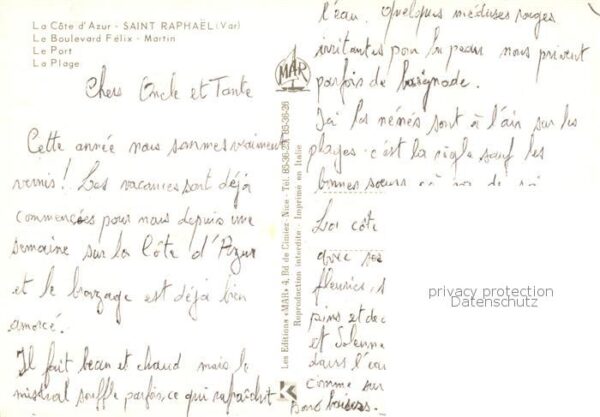 La Côte d'Azur - SAINT RAPHAËL (Var)
Le Boulevard Félix - Martin
Le Port
La Plage
Chers Oncle et Tante
Cette année nous sommes vraiment
vernis! Les vacances sont déjà
commencées pour nous depuis une
semaine sur la Côte d'Azur
et le bronzage est déjà bien
amorcé.
Il fait beau et chaud mais le
mistral souffle parfois, ce qui rafraîchit
MAR
Les Editions «MAR» 4, Bd de Cimiez Nice - Tél. 85-36-23, 85-36-26
Reproduction interdite - Imprimé en Italie
K
l'eau. Quelques méduses rouges
irritantes pour la peau nous privent
parfois de baignade.
Ici les nénés sont à l'air sur les
plages - c'est la règle sauf les
bonnes soeurs
La côte
avec ses
fleuries,
pins et de
et
dans l'eau
comme sur
Bons baisers.
privacy protection
Datenschutz